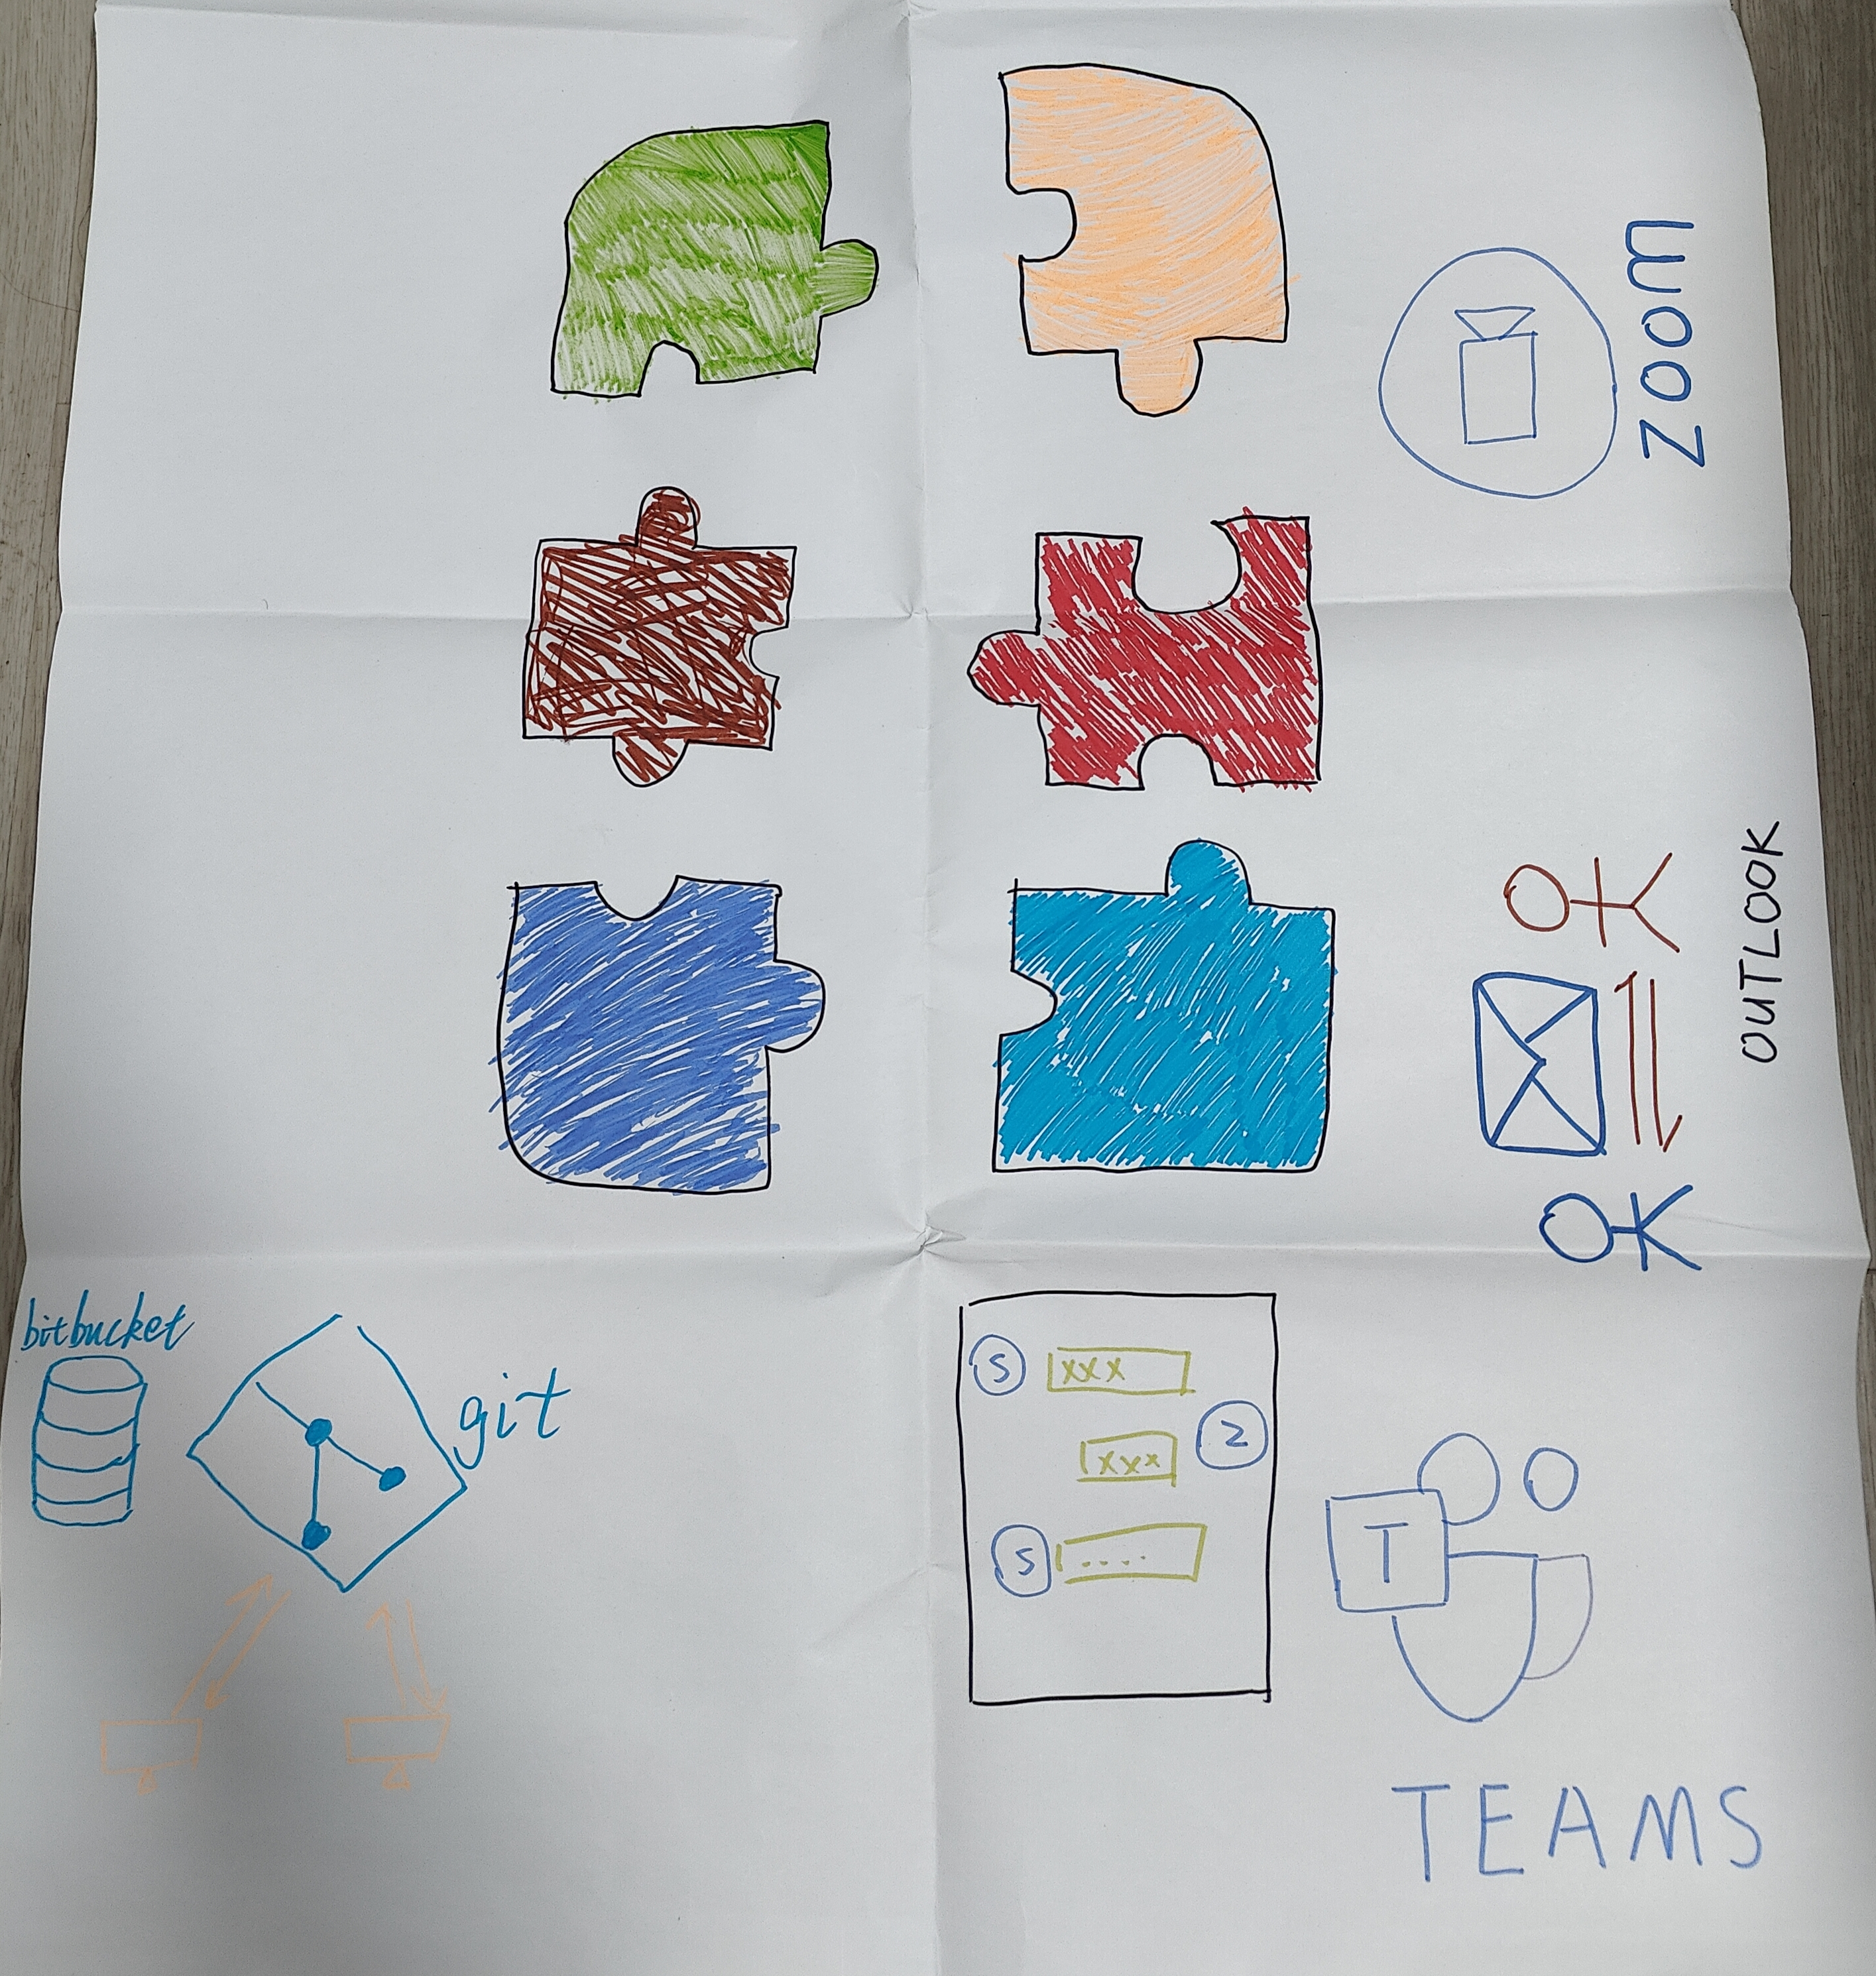 zoom
OUTLOOK
bitbucket
git
S
xxx
2
xxx
S
....
T
TEAMS